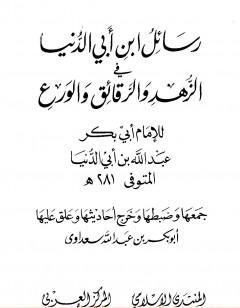 رسائل ابن أبي الدنيا
في
الزهد والرقائق والورع
للإمام أبي بكر
عبد الله بن أبي الدنيا
المتوفى ٢٨١ هـ
جمعها وضبطها وخرج أحاديثها وعلق عليها
أبو بكر بن عبد الله سعداوي
المنتدى الإسلامي المركز العربي